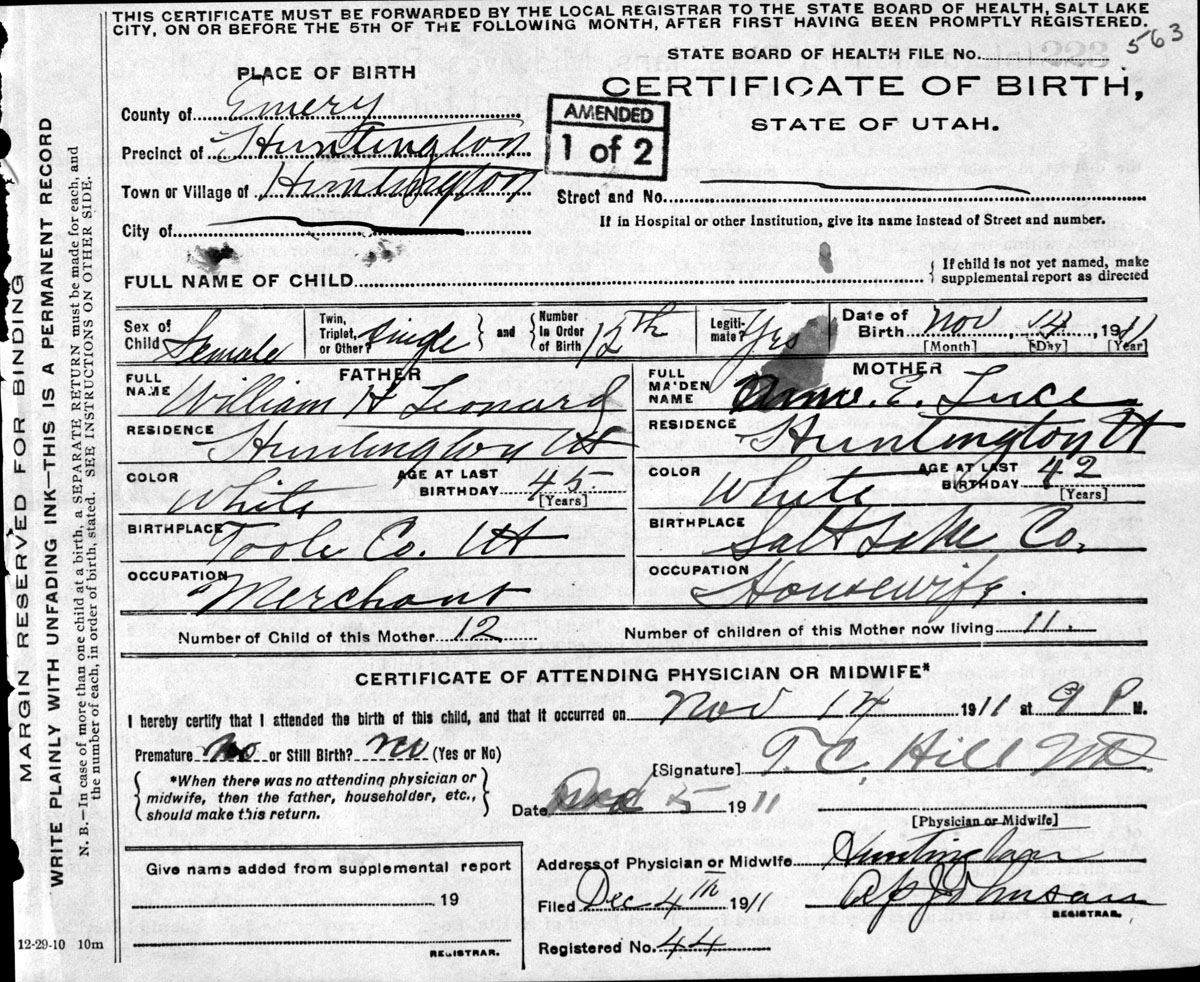 THIS CERTIFICATE MUST BE FORWARDED BY THE LOCAL REGISTRAR TO THE STATE BOARD OF HEALTH, SALT LAKE
CITY, ON OR BEFORE THE 5TH OF THE FOLLOWING MONTH, AFTER FIRST HAVING BEEN PROMPTLY REGISTERED.
STATE BOARD OF HEALTH FILE No. 563
PLACE OF BIRTH
CERTIFICATE OF BIRTH,
STATE OF UTAH.
AMENDED
1 of 2
County of Emery
Precinct of Huntington
Town or Village of Huntington
Street and No.
City of
If in Hospital or other Institution, give its name instead of Street and number.
FULL NAME OF CHILD
If child is not yet named, make
supplemental report as directed
Sex of Child Female
Twin, Triplet, or Other? Single
and Number in Order of Birth 12th
Legitimate? Yes
Date of Birth Nov 14, 1911
[Month] [Day] [Year]
FATHER
FULL NAME William H Leonard
RESIDENCE Huntington Ut
COLOR White
AGE AT LAST BIRTHDAY 45 [Years]
BIRTHPLACE Toole Co. Ut
OCCUPATION Merchant
MOTHER
FULL MAIDEN NAME E. Luce
RESIDENCE Huntington Ut
COLOR White
AGE AT LAST BIRTHDAY 42 [Years]
BIRTHPLACE Salt Lake Co.
OCCUPATION Housewife.
Number of Child of this Mother 12
Number of children of this Mother now living 11.
CERTIFICATE OF ATTENDING PHYSICIAN OR MIDWIFE*
I hereby certify that I attended the birth of this child, and that it occurred on Nov 14 1911 at 9 P M.
Premature No or Still Birth? No (Yes or No)
*When there was no attending physician or
midwife, then the father, householder, etc.,
should make this return.
[Signature] T. C. Hill MD.
Date Dec 5 1911
[Physician or Midwife]
Give name added from supplemental report
19
REGISTRAR.
Address of Physician or Midwife Huntington
Filed Dec 4th 1911 Johnson
REGISTRAR.
Registered No. 44
12-29-10 10m
MARGIN RESERVED FOR BINDING
WRITE PLAINLY WITH UNFADING INK—THIS IS A PERMANENT RECORD
N. B.—In case of more than one child at a birth, a SEPARATE RETURN must be made for each, and
the number of each, in order of birth, stated. SEE INSTRUCTIONS ON OTHER SIDE.